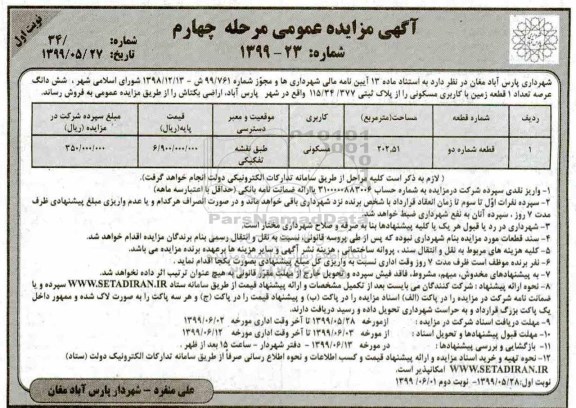 نوبت اول
آگهی مزایده عمومی مرحله چهارم
شماره: ۲۳-۱۳۹۹
شماره: ۳۴/
تاریخ: ۱۳۹۹/۰۵/۲۷
شهرداری پارس آباد مغان در نظر دارد به استناد ماده ۱۳ آیین نامه مالی شهرداری ها و مجوز شماره ۹۹/۷۶۱ ش - ۱۳۹۸/۱۲/۱۳ شورای اسلامی شهر ، شش دانگ
عرصه تعداد ۱ قطعه زمین با کاربری مسکونی را از پلاک ثبتی ۱۱۵/۳۴/۳۷۷ واقع در شهر پارس آباد، اراضی یکتاش را از طریق مزایده عمومی به فروش رساند.
ردیف شماره قطعه مساحت(مترمربع) کاربری موقعیت و معبر دسترسی قیمت پایه(ریال) مبلغ سپرده شرکت در مزایده (ریال)
۱ قطعه شماره دو ۲۰۲.۵۱ مسکونی طبق نقشه تفکیکی ۶/۹۰۰/۰۰۰/۰۰۰ ۳۵۰/۰۰۰/۰۰۰
( لازم به ذکر است کلیه مراحل از طریق سامانه تدارکات الکترونیکی دولت انجام خواهد گرفت).
۱- واریز نقدی سپرده شرکت درمزایده به شماره حساب ۳۱۰۰۰۰۰۸۸۳۰۰۴ یاارائه ضمانت نامه بانکی (حداقل با اعتبارسه ماهه)
۲- سپرده نفرات اول تا سوم تا زمان انعقاد قرارداد با شخص برنده نزد شهرداری باقی خواهد ماند و در صورت انصراف هرکدام و یا عدم واریزی مبلغ پیشنهادی ظرف
مدت ۷ روز ، سپرده آنان به نفع شهرداری ضبط خواهد شد.
۳- شهرداری در رد یا قبول هر یک یا کلیه پیشنهادها بنا به صرفه و صلاح شهرداری مختار است.
۴- سند قطعات مورد مزایده بنام شهرداری نبوده که پس از طی پروسه قانونی، نسبت به نقل و انتقال رسمی بنام برندگان مزایده اقدام خواهد شد.
۵- کلیه هزینه های مربوط به نقل و انتقال سند ، پروانه ساختمانی ، هزینه نشر آگهی و سایر هزینه ها برعهده برنده مزایده می باشد.
۶- نفر برنده موظف است ظرف مدت ۷ روز وقت اداری نسبت به واریزی کل مبلغ پیشنهادی بصورت یکجا اقدام نماید .
۷- به پیشنهادهای مخدوش، مبهم، مشروط، فاقد فیش سپرده و تحویل خارج از مهلت مقرر قانونی به هیچ عنوان ترتیب اثر داده نخواهد شد.
۸- نحوه ارائه پیشنهاد : شرکت کنندگان می بایست بعد از تکمیل مشخصات و ارائه پیشنهاد قیمت از طریق سامانه ستاد WWW.SETADIRAN.IR سپرده و یا
ضمانت نامه شرکت در مزایده را در پاکت (الف) اسناد مزایده را در پاکت (ب) و پیشنهاد قیمت را در پاکت (ج) و هر سه پاکت را به صورت لاک شده و ممهور داخل
یک پاکت بزرگ قرارداد و به حراست شهرداری تحویل داده و رسید دریافت دارند.
۹- مهلت دریافت اسناد شرکت در مزایده : ازمورخه ۱۳۹۹/۰۵/۲۸ تا آخر وقت اداری مورخه ۱۳۹۹/۰۶/۰۲
۱۰- مهلت قبول پیشنهادها و تحویل اسناد : از مورخه ۱۳۹۹/۰۶/۰۳ تا آخر وقت اداری مورخه ۱۳۹۹/۰۶/۱۲
۱۱- بازگشایی و بررسی پیشنهادها: در مورخه ۱۳۹۹/۰۶/۱۳ - دفتر شهردار - ساعت ۱۵ بعد از ظهر .
۱۲- نحوه تهیه و خرید اسناد مزایده و ارائه پیشنهاد قیمت و کسب اطلاعات و نحوه اطلاع رسانی صرفاً از طریق سامانه تدارکات الکترونیک دولت (ستاد)
WWW.SETADIRAN.IR امکانپذیر است.
نوبت اول:۱۳۹۹/۰۵/۲۸- نوبت دوم ۱۳۹۹/۰۶/۰۱
علی منفرد - شهردار پارس آباد مغان
ParsNamadData